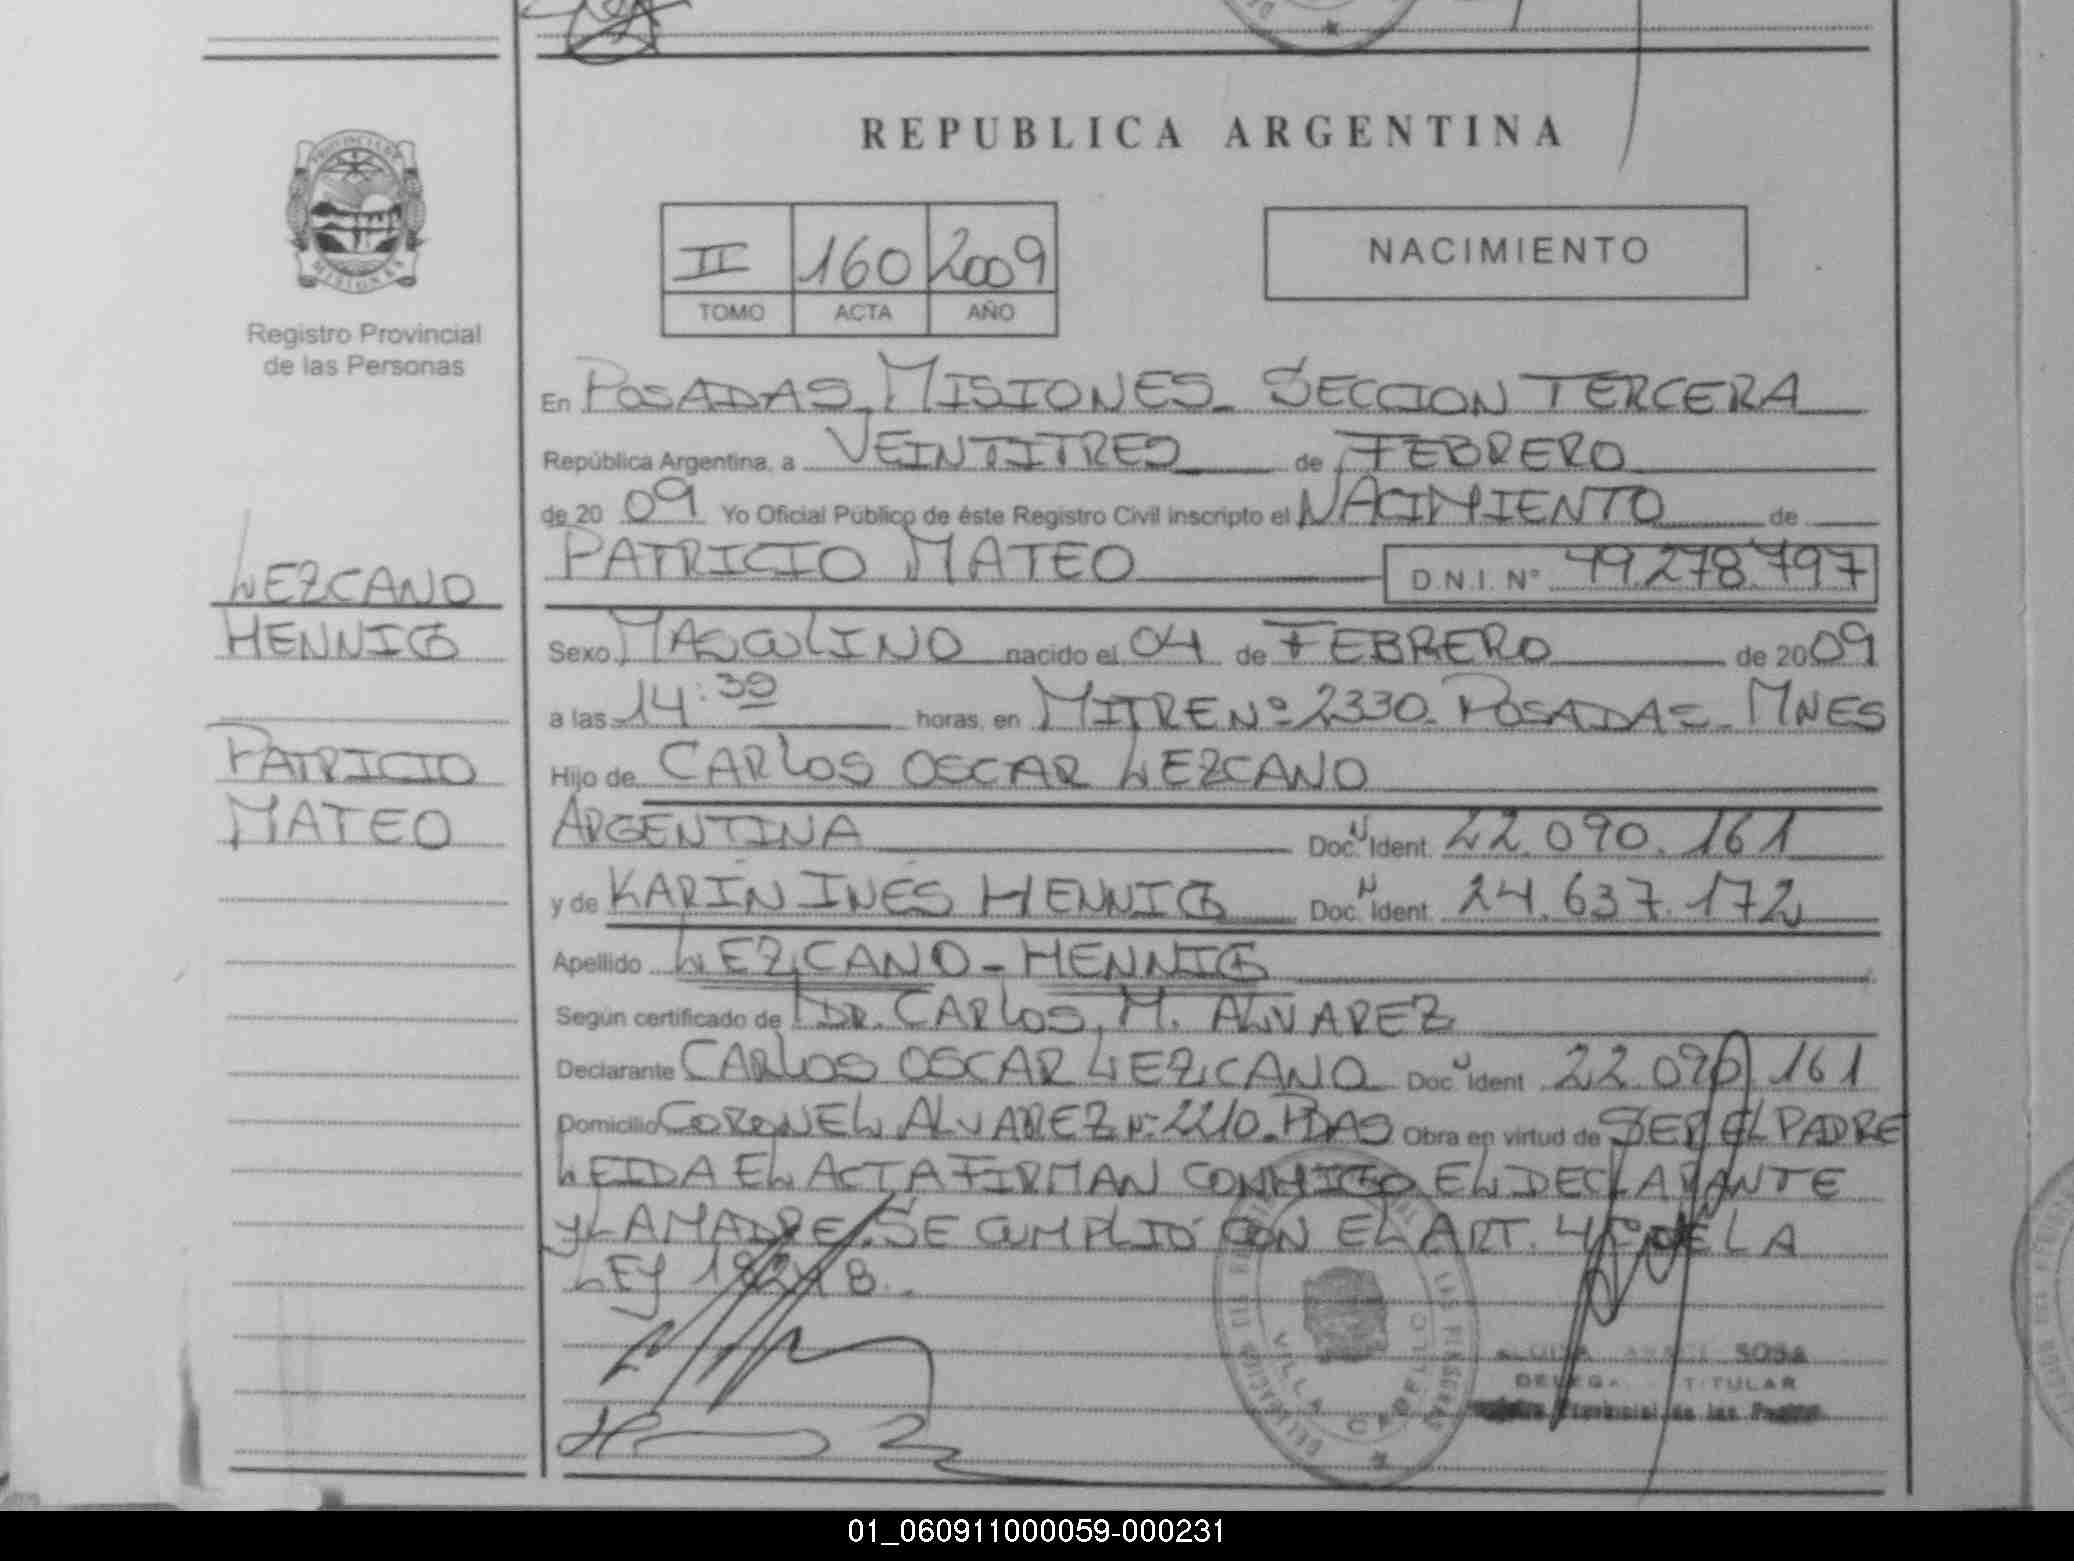 REPUBLICA ARGENTINA
PROVINCIA DE
MISIONES
Registro Provincial
de las Personas
II 160 2009
TOMO ACTA AÑO
NACIMIENTO
En POSADAS, MISIONES. SECCION TERCERA
República Argentina, a VEINTITRES de FEBRERO
de 2009 Yo Oficial Público de éste Registro Civil inscripto el NACIMIENTO de
PATRICIO MATEO D.N.I. Nº 49.278.797
LEZCANO
HENNIG
PATRICIO
MATEO
Sexo MASCULINO nacido el 04 de FEBRERO de 2009
a las 14:30 horas, en MITRE Nº 2330. POSADAS. MNES
Hijo de CARLOS OSCAR LEZCANO
ARGENTINA Doc. N Ident. 22.090.161
y de KARIN INES HENNIG Doc. N Ident. 24.637.172
Apellido LEZCANO - HENNIG
Según certificado de DR. CARLOS, M. ALVAREZ
Declarante CARLOS OSCAR LEZCANO Doc. N Ident 22.090.161
Domicilio CORONEL ALVAREZ Nº 2210. PDAS Obra en virtud de SER EL PADRE
LEIDA EL ACTA FIRMAN CONMIGO EL DECLARANTE
Y LA MADRE. SE CUMPLIO CON EL ART. DE LA
LEY
VILLA CABELLO
SOSA
TITULAR
Provincial de las
01_060911000059-000231